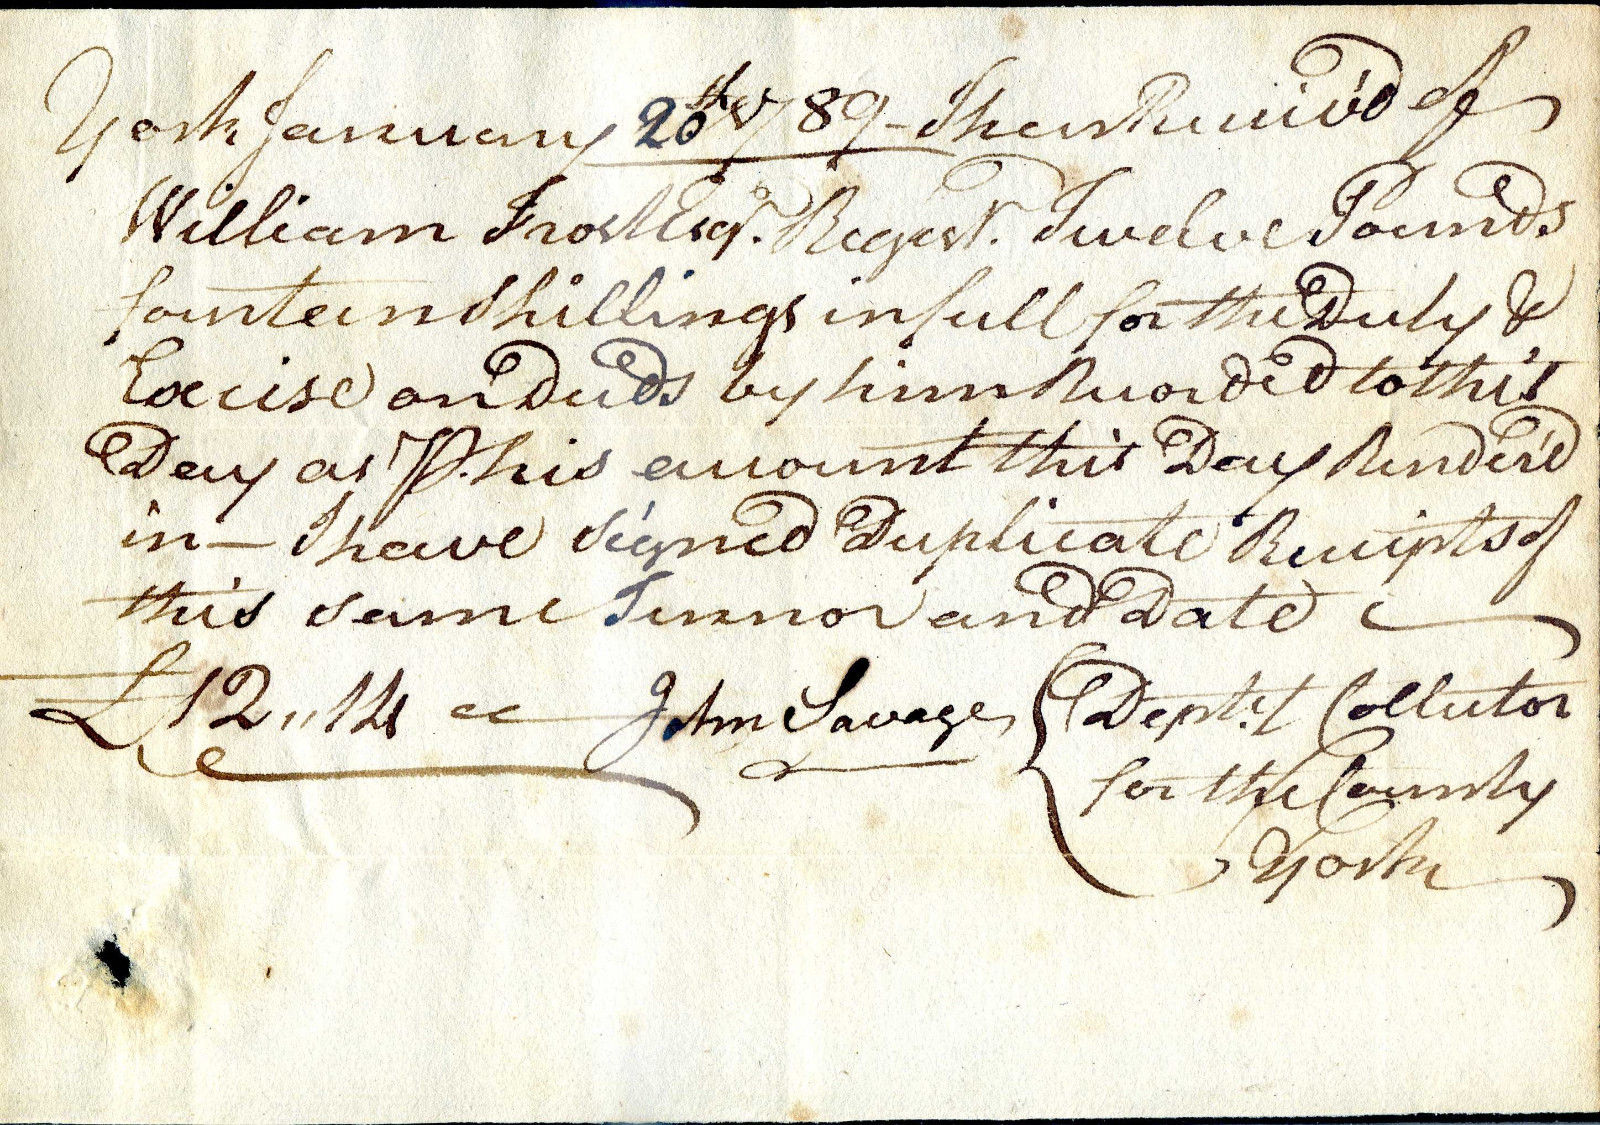 York January 20th 1789 - Then Receiv'd of
William Frost Esqr. Regestr. Twelve Pounds
fourteen Shillings in full for the Duty &
Excise on Deeds by him Recorded to this
Day as Pr. his account this Day Render'd
in — I have Signed Duplicate Receipts of
this same Tennor and Date
£12,,14 John Savage Depty. Collector
for the County
York